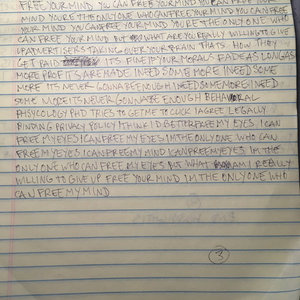 FREE YOUR MIND YOU CAN FREE YOUR MIND YOU CAN FREE YOUR
MIND YOURE THE ONLY ONE WHO CAN FREE YOUR MIND YOU CAN FREE
YOUR MIND YOU CAN FREE YOUR MIND YOU'RE THE ONLY ONE WHO
CAN FREE YOUR MIND BUT WHAT ARE YOU REALLY WILLING TO GIVE
UP ADVERTISERS TAKING OVER YOUR BRAIN THATS HOW THEY
GET PAID ITS FINE IF YOUR MORALS FADE AS LONG AS
MORE PROFITS ARE MADE I NEED SOME MORE I NEED SOME
MORE ITS NEVER GONNA BE ENOUGH I NEED SOME MORE I NEED
SOME MORE ITS NEVER GONNA BE ENOUGH BEHAVORAL
PHSYCOLOGY PHD TRIES TO GET ME TO CLICK I AGREE LEGALLY
BINDING PRIVACY POLICY I THINK ID BETTER FREE MY EYES I CAN
FREE MY EYES I CAN FREE MY EYES IM THE ONLY ONE WHO CAN
FREE MY EYES I CAN FREE MY MIND I CAN FREE MY EYES IM THE
ONLY ONE WHO CAN FREE MY EYES BUT WHAT AM I REALLY
WILLING TO GIVE UP FREE YOUR MIND IM THE ONLY ONE WHO
CAN FREE MY MIND
3